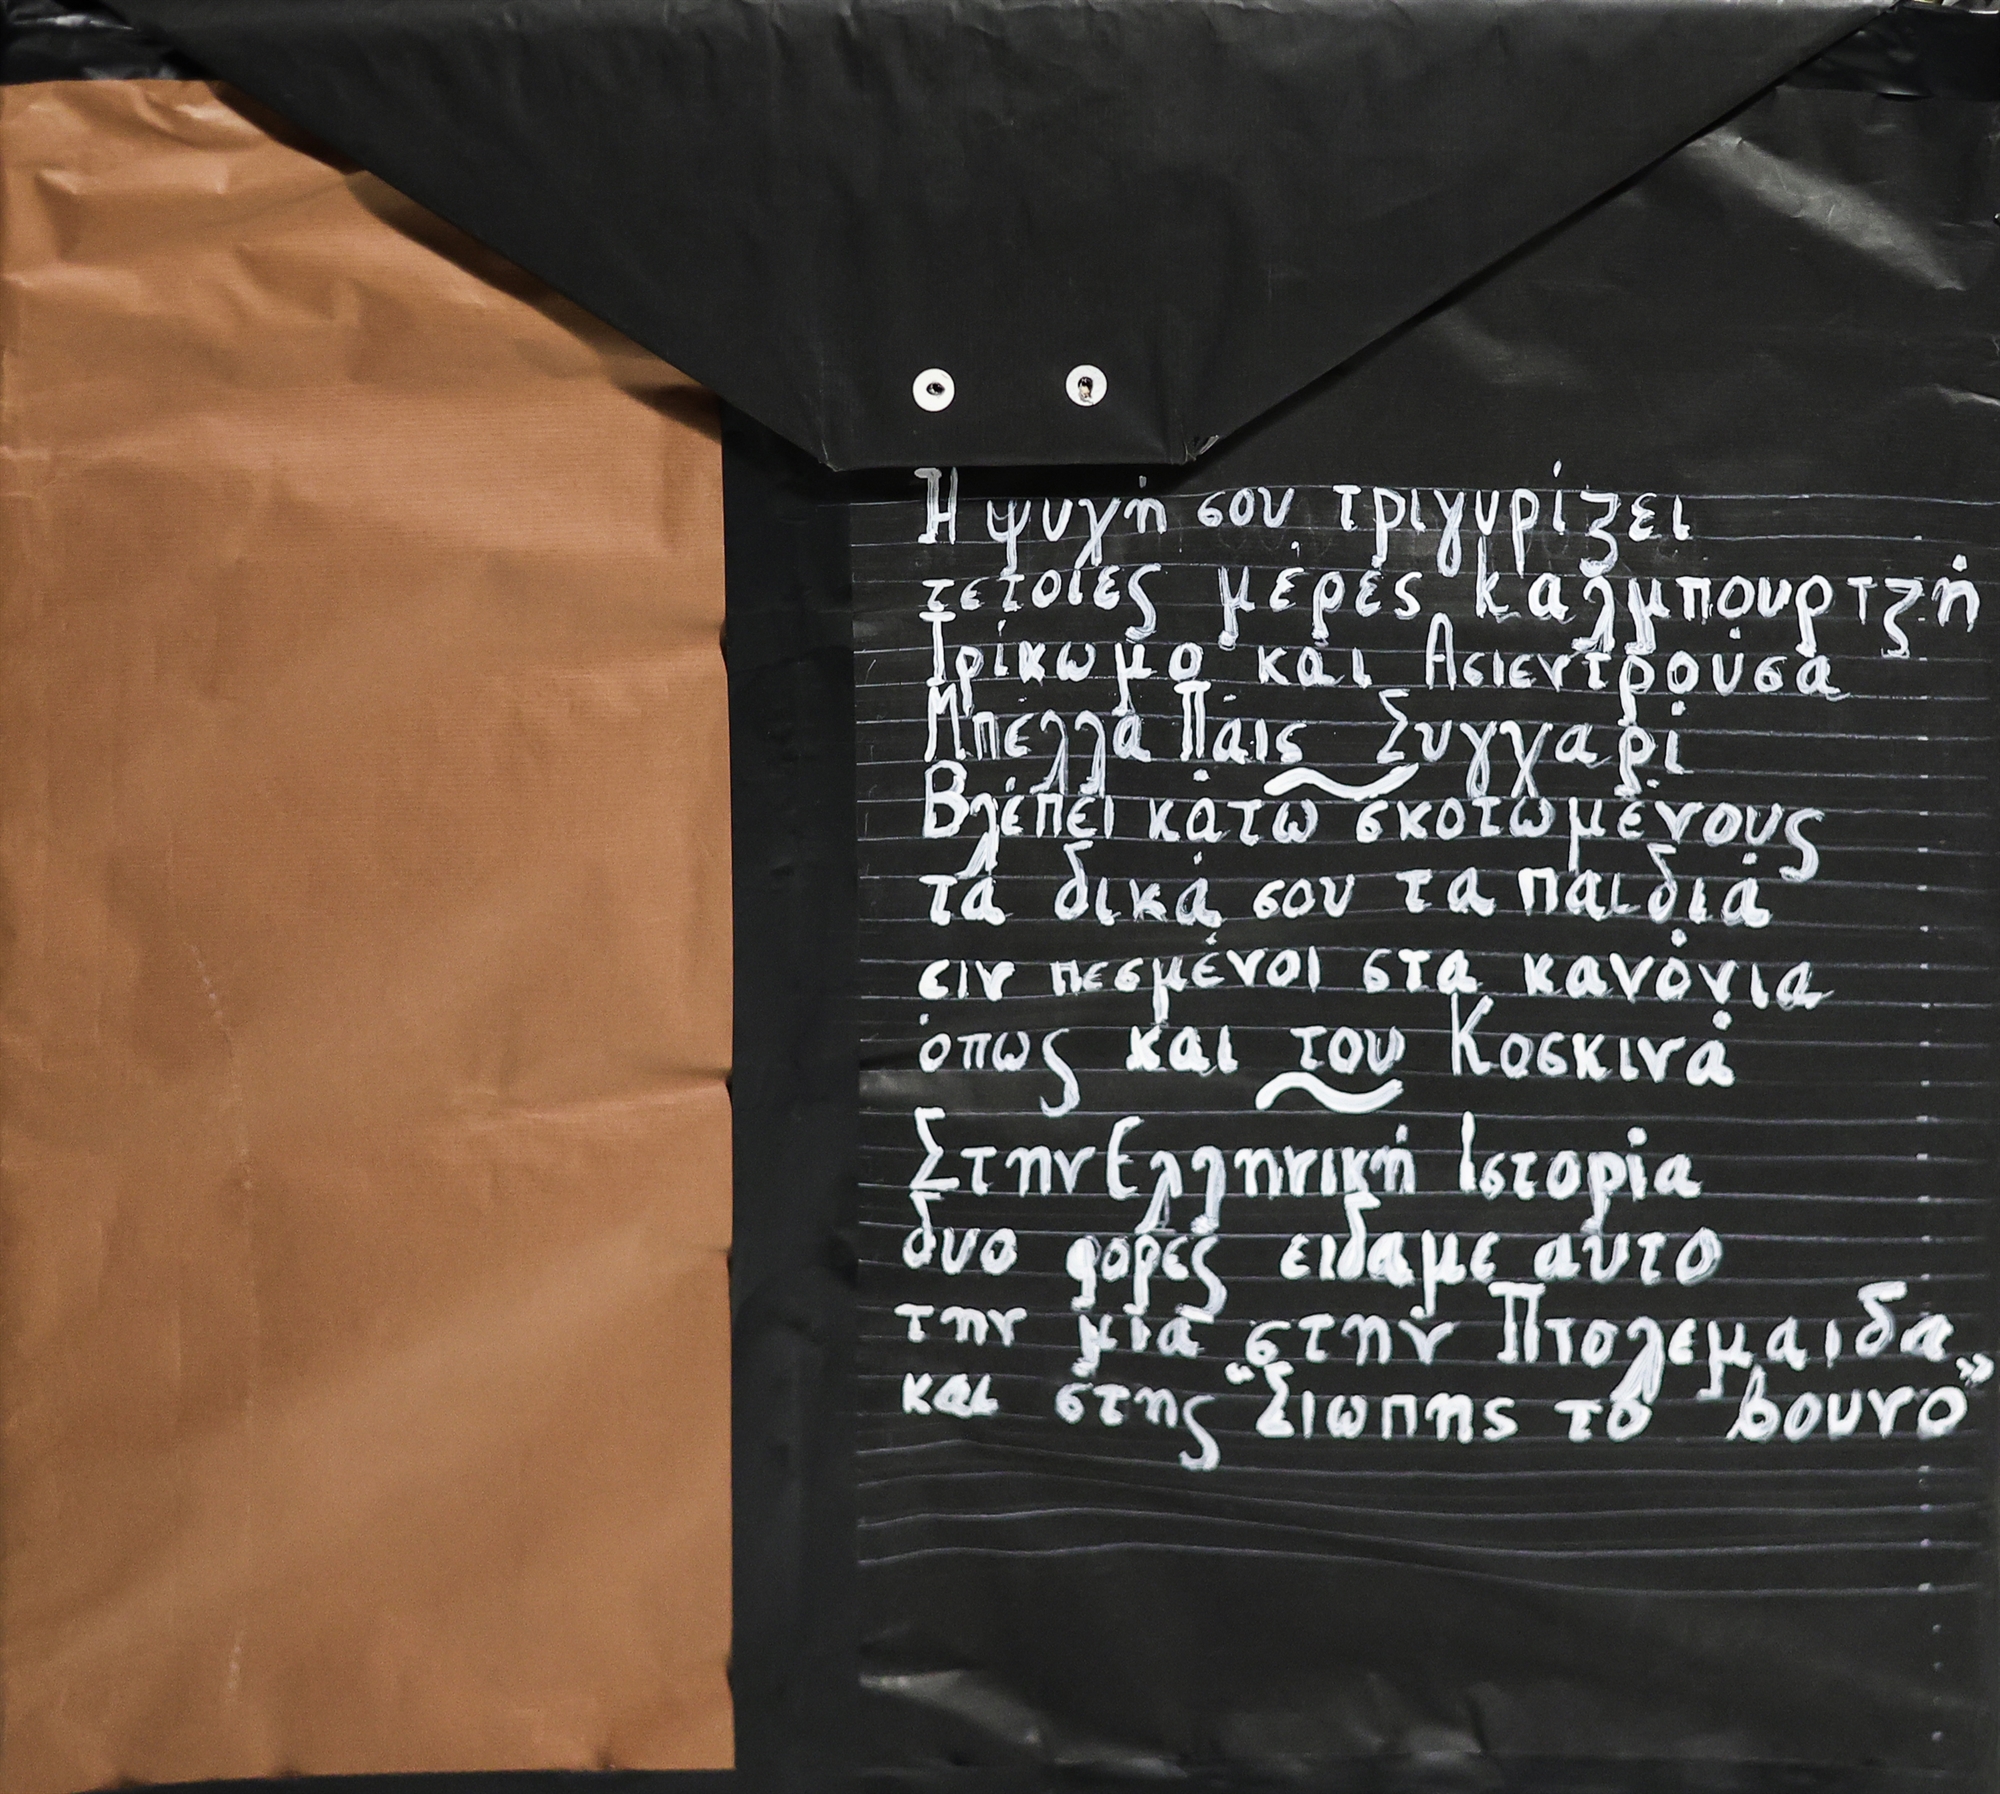 Η ψυχή σου τριγυρίζει
τέτοιες μέρες Καλμπουρτζή
Τρίκωμο και Ασιεντρούσα
Μπέλλα Πάις Συγχαρί
Βλέπει κάτω σκοτωμένους
τα δικά σου τα παιδιά
ειν πεσμένοι στα κανόνια
όπως και του Κοσκινά
Στην Ελληνική Ιστορία
δυο φορές ειδαμε αυτο
την μια στην Πτολεμαιδα
και στης "Σιωπης το βουνο"